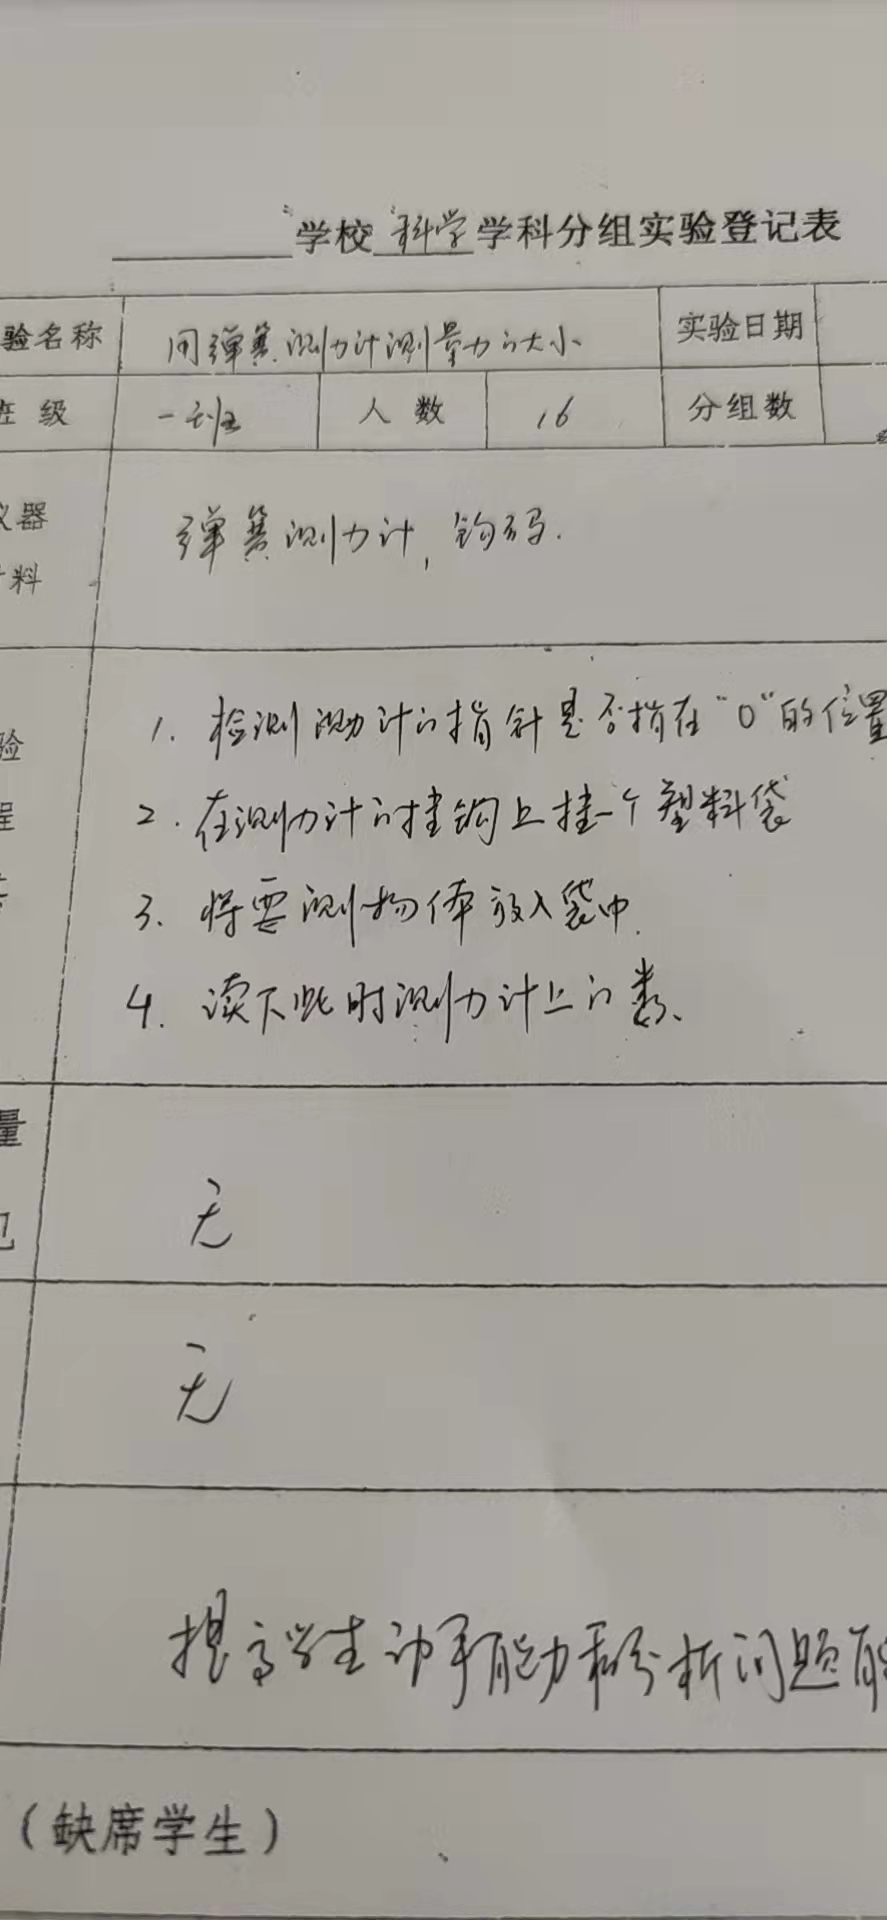 学校 科学 学科分组实验登记表
验名称 用弹簧测力计测量力的大小 实验日期
班 级 一班 人 数 16 分组数
仪器 弹簧测力计,钩码.
材料
1. 检测测力计的指针是否指在“0”的位置
验
2. 在测力计的挂钩上挂一个塑料袋
程
3. 将要测物体放入袋中.
4. 读下此时测力计上的数、
量
无
无
提高学生动手能力和分析问题能
(缺席学生)